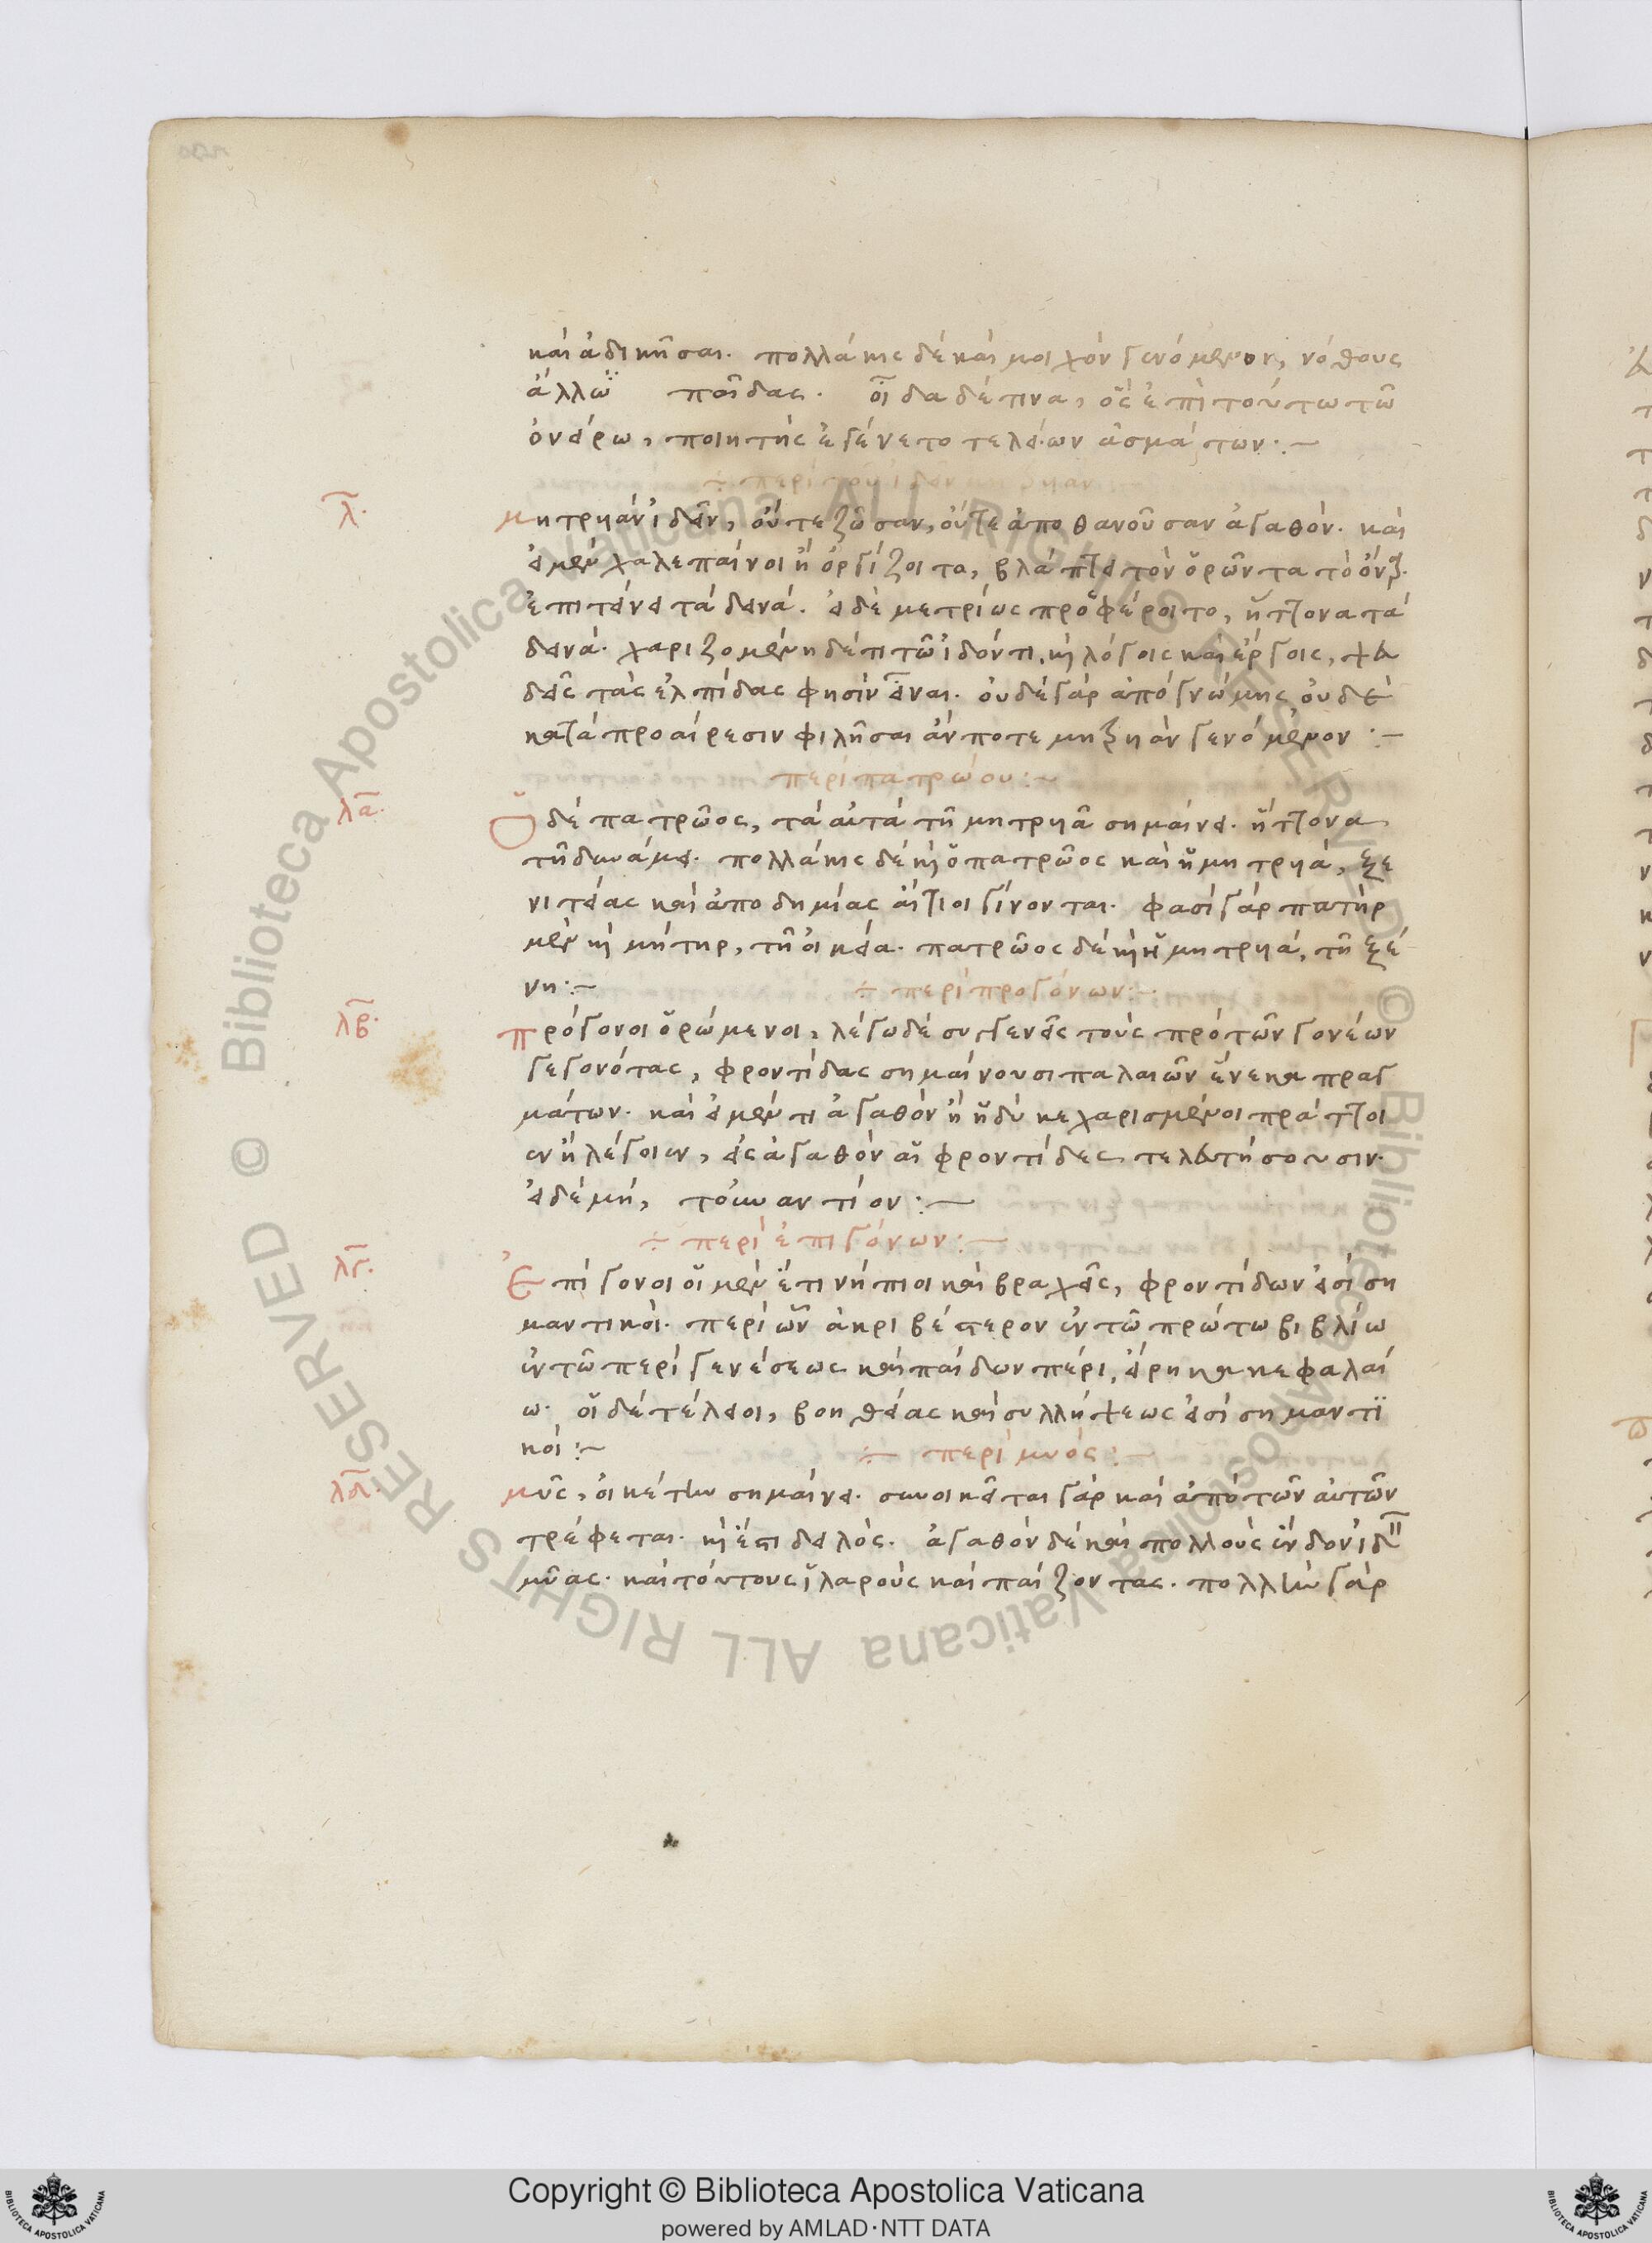 και ἀδικῆσαι. πολλάκις δὲ καὶ μοιχὸν γενόμενον, νόθους
ἄλλω παῖδας. οἶδα δέ τινα, ὃς ἐπὶ τούτω τῶ
ὀνείρω, ποιητὴς ἐγένετο τελείων ἀσμάτων:-
÷ περὶ τοῦ ἰδεῖν μητρυιαν
λ.
μητρυιὰν ἰδεῖν, οὔτε ζῶσαν, οὔτε ἀποθανοῦσαν ἀγαθόν. καὶ
εἰ μὲν χαλεπαίνοι ἢ ὀργίζοιτο, βλάπτει τὸν ὁρῶντα τὸ ὄναρ.
ἐπιτείνει τὰ δεινά. εἰ δὲ μετρίως προσφέροιτο, ἥττονα τὰ
δεινά. χαριζομένη δέ τι τῶ ἰδόντι, κὴ λόγοις καὶ ἔργοις, ψευ
δεῖς τὰς ἐλπίδας φησὶν εἶναι. οὐδὲ γὰρ ἀπὸ γνώμης, οὐδὲ
κατὰ προαίρεσιν φιλῆσαι ἄν ποτε μητρυιὰν γενόμενον:-
περὶ πατρώου:~
λα.
Ὁ δὲ πατρῶος, τὰ αὐτὰ τῆ μητρυιᾶ σημαίνει. ἥττονα
τῆ δυνάμει. πολλάκις δὲ κὴ ὁ πατρῶος καὶ ἡ μητρυιά, ξε
νιτείας καὶ ἀποδημίας αἴτιοι γίνονται. φασὶ γὰρ πατὴρ
μὲν κὴ μήτηρ, τῆ οἰκεία. πατρῶος δὲ κὴ ἡ μητρυιά, τῆ ξέ
νη:- ÷ περὶ προγόνων:-
λβ.
πρόγονοι ὁρώμενοι, λέγω δὲ συγγενεῖς τοὺς πρὸ τῶν γονέων
γεγονότας, φροντίδας σημαίνουσι παλαιῶν ἕνεκα πραγ
μάτων. καὶ εἰ μέν τι ἀγαθὸν ἢ ἡδὺ κεχαρισμένοι πράττοι
εν ἢ λέγοιεν, εἰς ἀγαθὸν αἱ φροντίδες τελευτήσουσιν.
εἰ δὲ μή, τοὐναντίον:-
÷ περὶ ἐπιγόνων:-
λγ.
Ἐπίγονοι οἱ μὲν ἔτι νήπιοι καὶ βραχεῖς, φροντίδων εἰσὶ ση
μαντικοί. περὶ ὧν ἀκριβέστερον ἐν τῶ πρώτω βιβλίω
ἐν τῶ περὶ γενέσεως καὶ παίδων πέρι, εἴρηκα κεφαλαί
ω. οἱ δὲ τέλειοι, βοηθείας καὶ συλλήψεως εἰσὶ σημαντι
κοί:~ ÷ περὶ μυός:-
λδ.
μῦς, οἰκέτην σημαίνει. συνοικεῖται γὰρ καὶ ἀπὸ τῶν αὐτῶν
τρέφεται. κὴ ἔστι δειλός. ἀγαθὸν δὲ καὶ πολλοὺς ἔνδον ἰδεῖν
μῦας. καὶ τούτους ἱλαροὺς καὶ παίζοντας. πολλὴν γὰρ
Copyright © Biblioteca Apostolica Vaticana
powered by AMLAD·NTT DATA